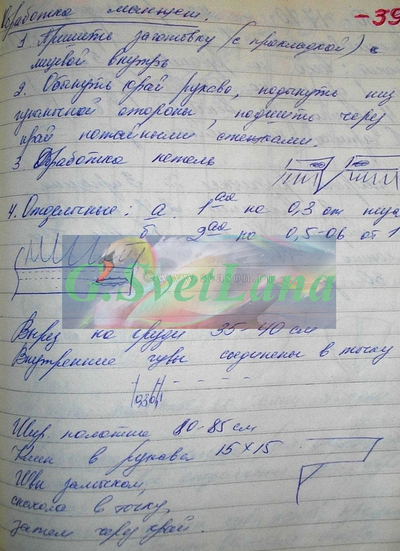 Обработка манжет.
- 39
1 Пришить заготовку (с прокладкой) с
внутрь
2. Обогнуть край рукава, подогнуть низ
изнаночной стороны, подшить через
край потайными стежками.
3 Обработка петель
4. Отделочные: а. 1ая на 0,3 от низа
б 2ая на 0,5-06 от 1
G.SvetLana
Вырез на груди 35-40 см
Внутренние швы соединены в точку
Шир. полотна 80-85 см
Клин в рукава 15 х 15
Швы замыком,
сначала в точку,
затем через край.